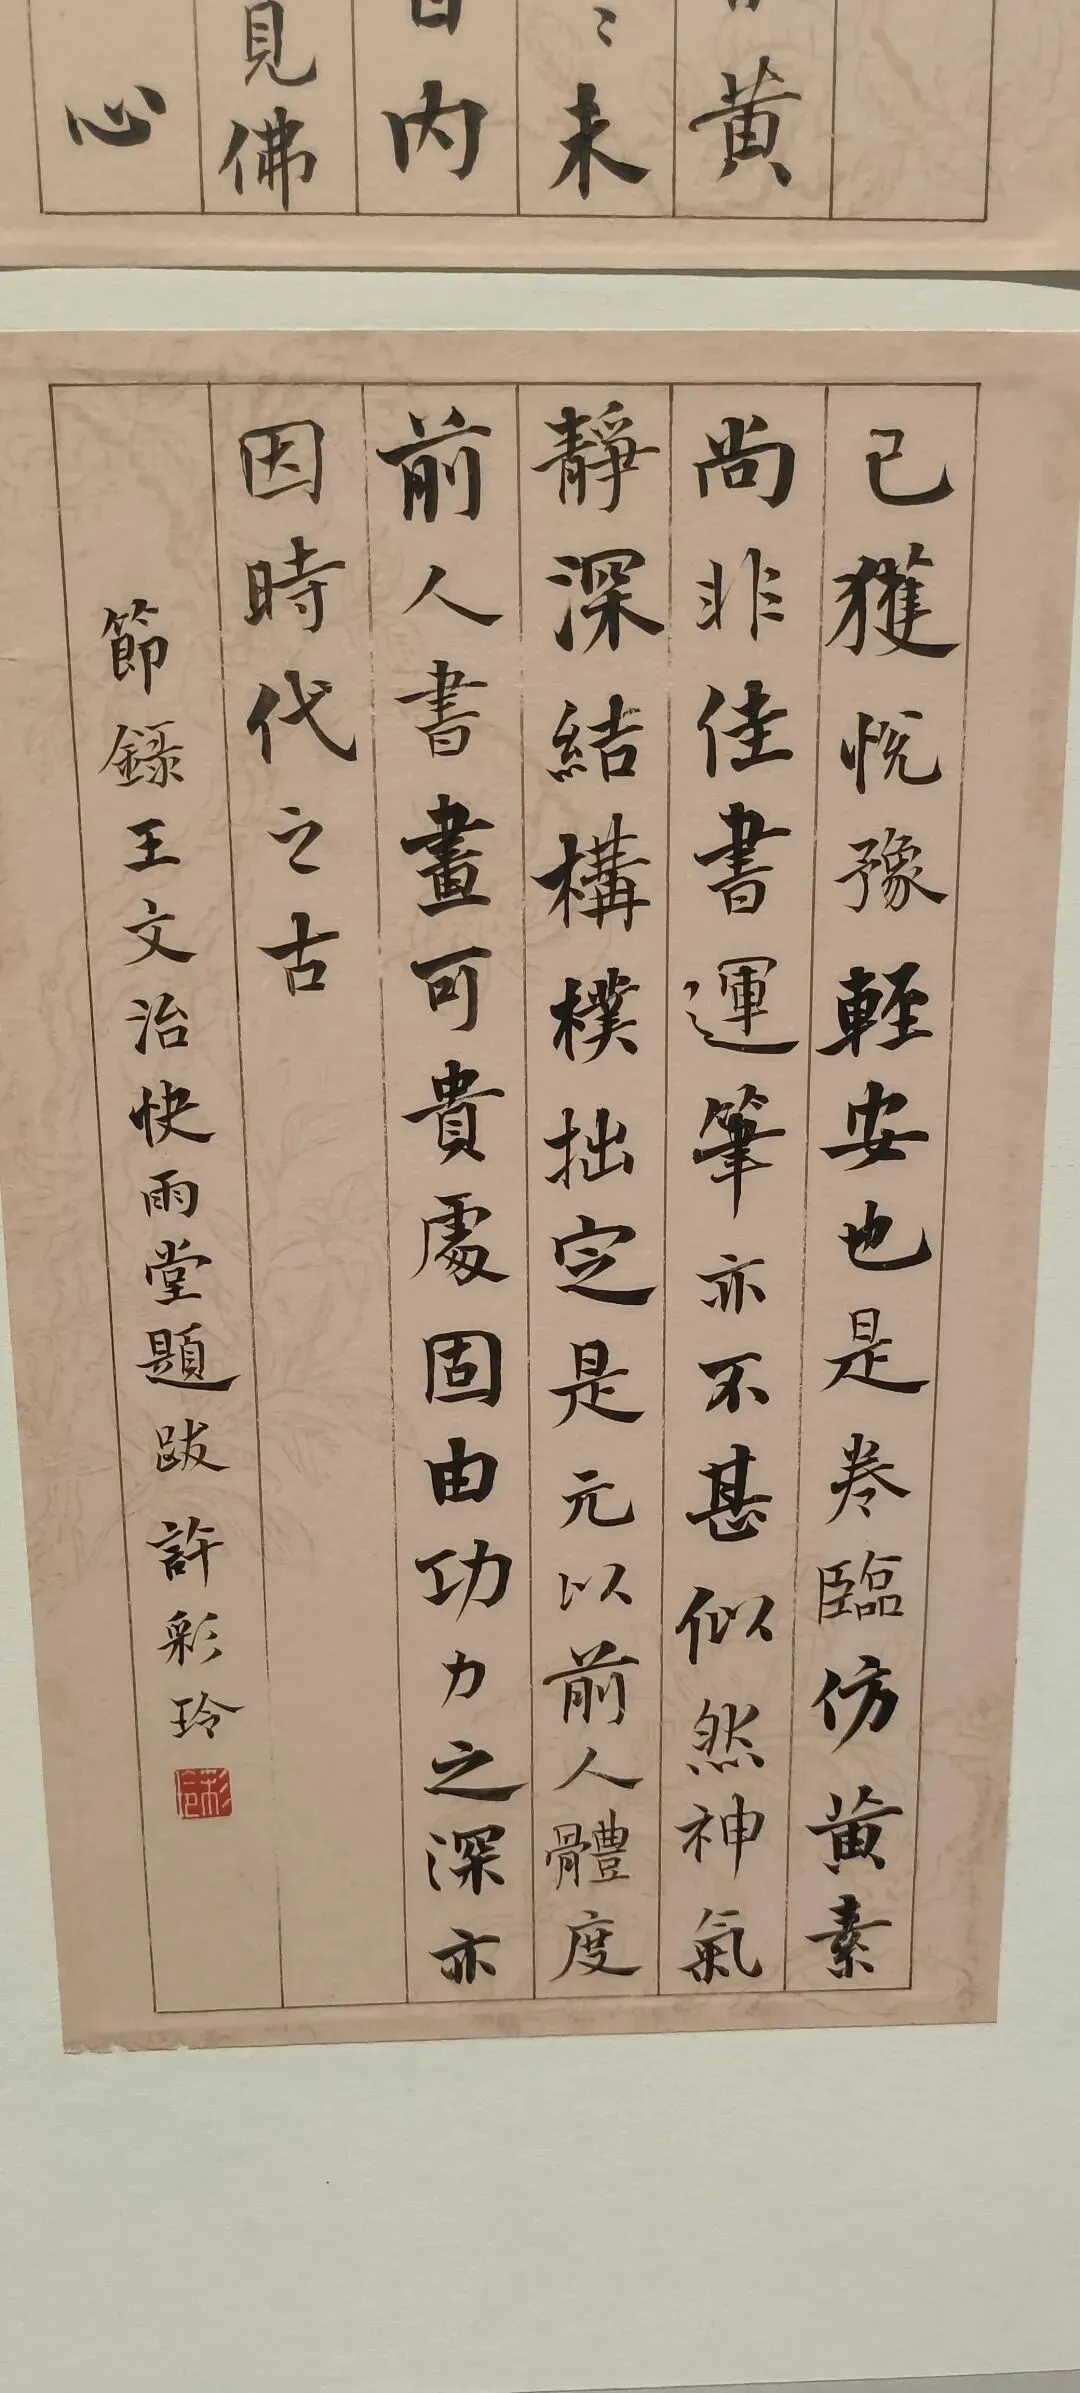 黃
〻未
內
見佛
心
已獲悅豫輕安也是卷臨仿黃素
尚非佳書運筆亦不甚似然神氣
靜深結構樸拙定是元以前人體度
前人書畫可貴處固由功力之深亦
因時代之古
節錄王文治快雨堂題跋許彩玲
彩玲